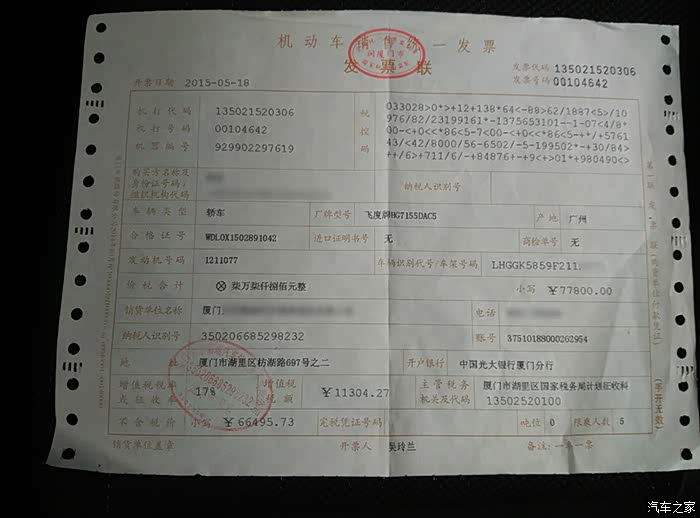 机动车销售统一发票
发票联
发票代码 135021520306
发票号码 00104642
开票日期 2015-05-18
机打代码 135021520306
机打号码 00104642
机器编号 929902297619
税控码
033028>0*>+12+138*64<-88>62/1887<5>/10
976/82/23199161*-1375653101--1-07<4/8*
00-<+0<<*86<5-7<00-<+0<<*86<5-++/+5761
43/<42/8000/56-6502/-5-199502*-+30/84>
++/6>+711/6/-+84876+-+9<+>01*+980490<>
购买方名称及身份证号码/组织机构代码
纳税人识别号
车辆类型 轿车 厂牌型号 飞度牌HG7155DAC5 产地 广州
合格证号 WDL0X1502891042 进口证明书号 无 商检单号 无
发动机号码 1211077 车辆识别代号/车架号码 LHGGK5859F211
价税合计 ⊗柒万柒仟捌佰元整 小写 ￥77800.00
销货单位名称 厦门 电话
纳税人识别号 350206685298232 账号 37510188000262954
地址 厦门市湖里区枋湖路697号之二 开户银行 中国光大银行厦门分行
增值税税率或征收率 17% 增值税税额 ￥11304.27 主管税务机关及代码 厦门市湖里区国家税务局计划征收科 13502520100
不含税价 小写 ￥66495.73 完税凭证号码 吨位 0 限乘人数 5
销货单位盖章 开票人 吴玲兰 备注：一车一条
第一联 发票联（购货单位付款凭证）
（手开无效）
汽车之家